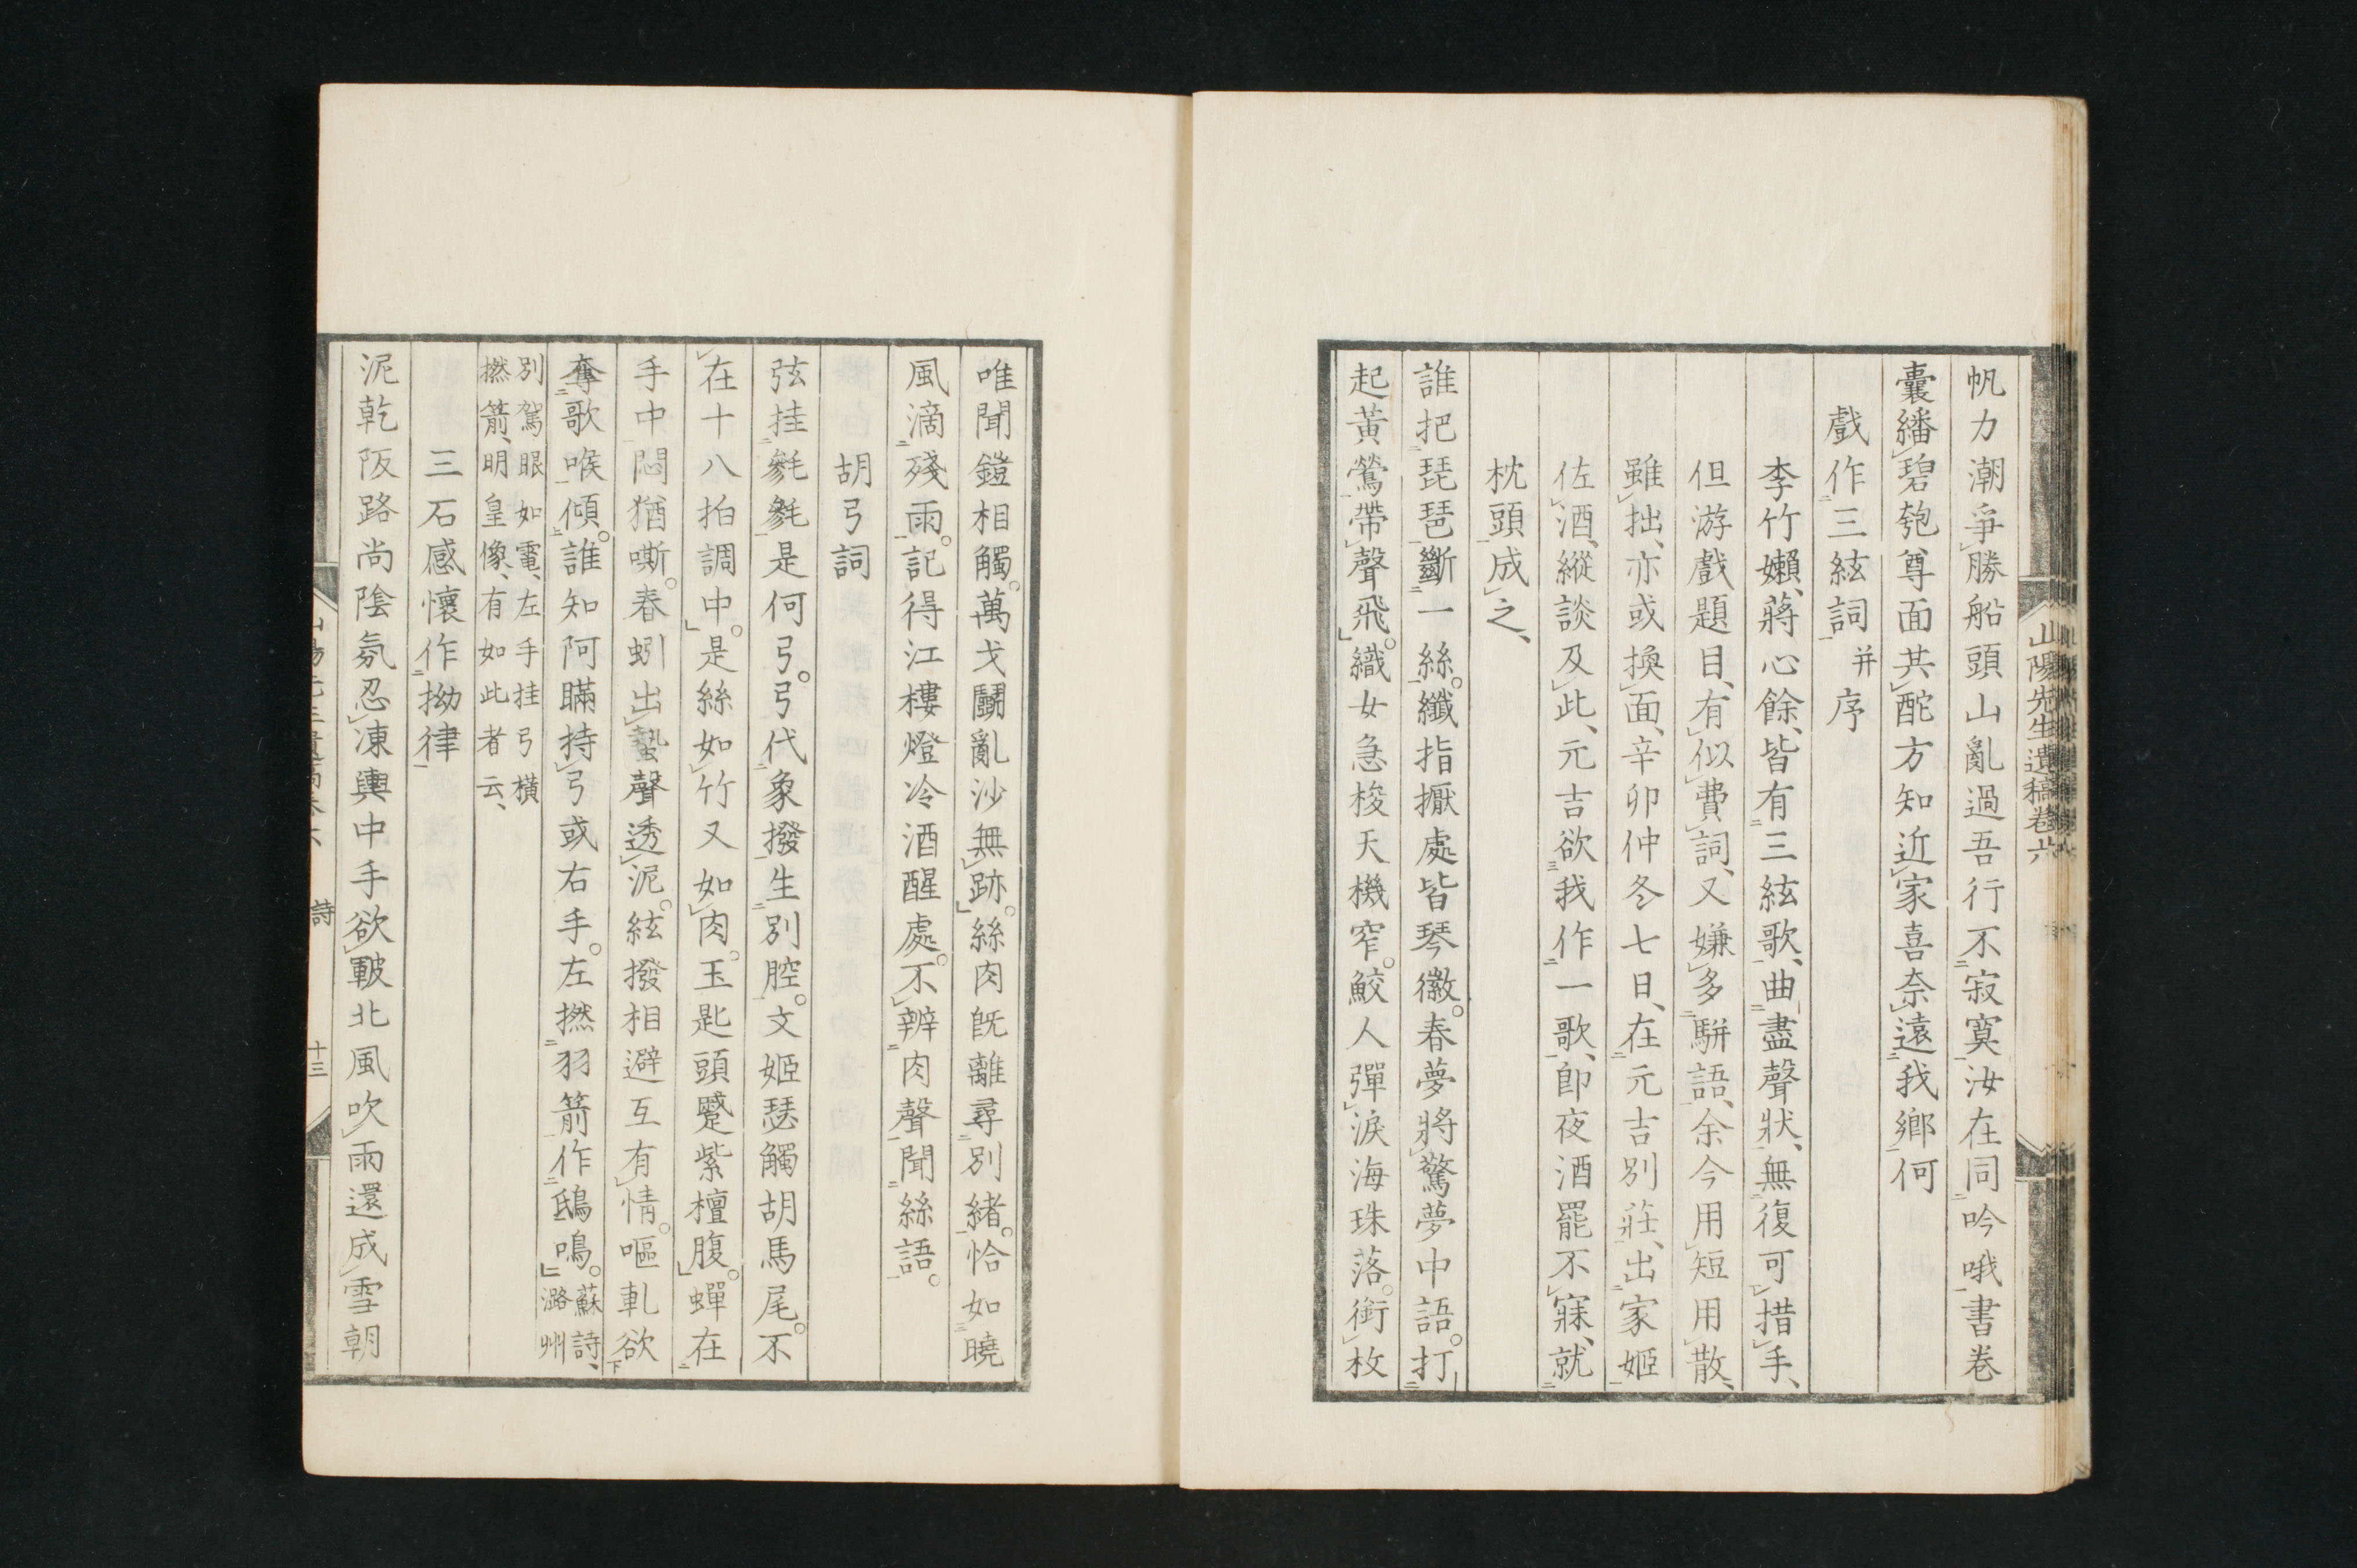 山陽先生遺稿卷六
帆力潮爭勝船頭山亂過吾行不寂寞汝在同吟哦書卷
囊繙碧匏尊面共酡方知近家喜奈遠我鄉何
戲作三絃詞并序
李竹嬾、蔣心餘、皆有三絃歌、曲盡聲狀、無復可措手、
但游戲題目、有似費詞、又嫌多駢語、余今用短用散、
雖拙、亦或換面、辛卯仲冬七日、在元吉別莊、出家姬
佐酒、縱談及此、元吉欲我作一歌、卽夜酒罷不寐、就
枕頭成之、
誰把琵琶斷一絲。纖指擫處皆琴徽。春夢將驚夢中語。打
起黃鶯帶聲飛。織女急梭天機窄。鮫人彈淚海珠落。銜枚
唯聞鎧相觸。萬戈鬭亂沙無跡。絲肉旣離尋別緒。恰如曉
風滴殘雨。記得江樓燈冷酒醒處。不辨肉聲聞絲語。
胡弓詞
弦挂毿毿是何弓。弓代象撥生別腔。文姬瑟觸胡馬尾。不
在十八拍調中。是絲如竹又如肉。玉匙頭蹙紫檀腹。蟬在
手中悶猶嘶。春蚓出蟄聲透泥。絃撥相避互有情。嘔軋欲
奪歌喉傾。誰知阿瞞持弓或右手。左撚羽箭作鴟鳴。蘇詩、潞州
別駕眼如電、左手挂弓橫
撚箭、明皇像、有如此者云、
三石感懷作拗律
泥乾阪路尚陰氛忍凍輿中手欲皸北風吹雨還成雪朝
詩
十三